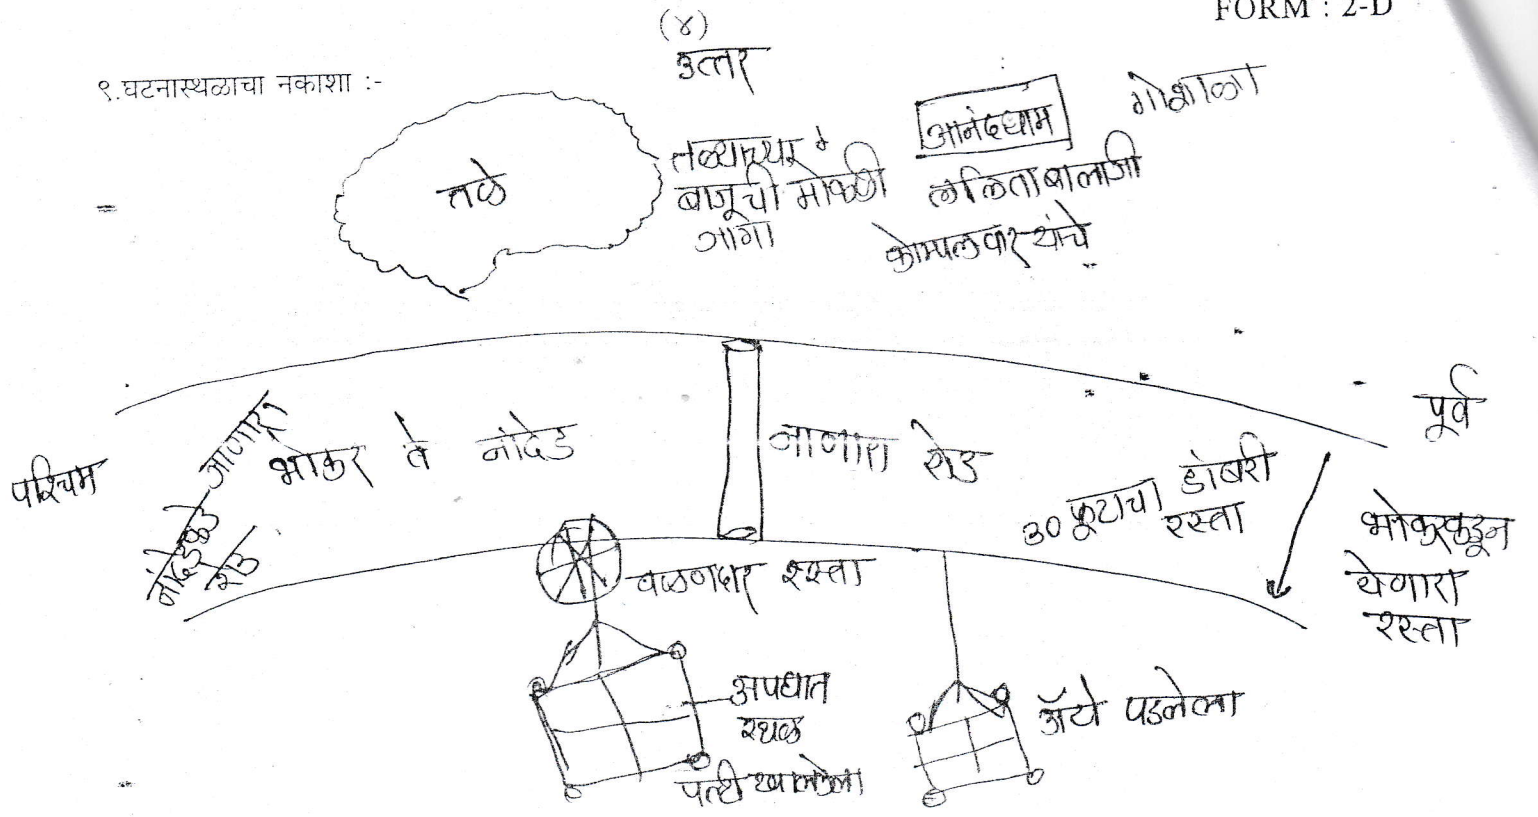 (४)
FORM : 2-D
उत्तर
९.घटनास्थळाचा नकाशा :-
तळे
तळ्याच्या
बाजूची मोकळी
जागा
आनंदधाम
गोशाळा
ललिताबालाजी
कोम्पलवार यांचे
पश्चिम
नांदेडकडे जाणारा
रोड
भोकर ते नांदेड
जाणारा रोड
पूर्व
30 फूटाचा डांबरी
रस्ता
भोकरकडून
येणारा
रस्ता
वळणदार रस्ता
अपघात
स्थळ
पल्टी खाल्लेला
ॲटो पडलेला